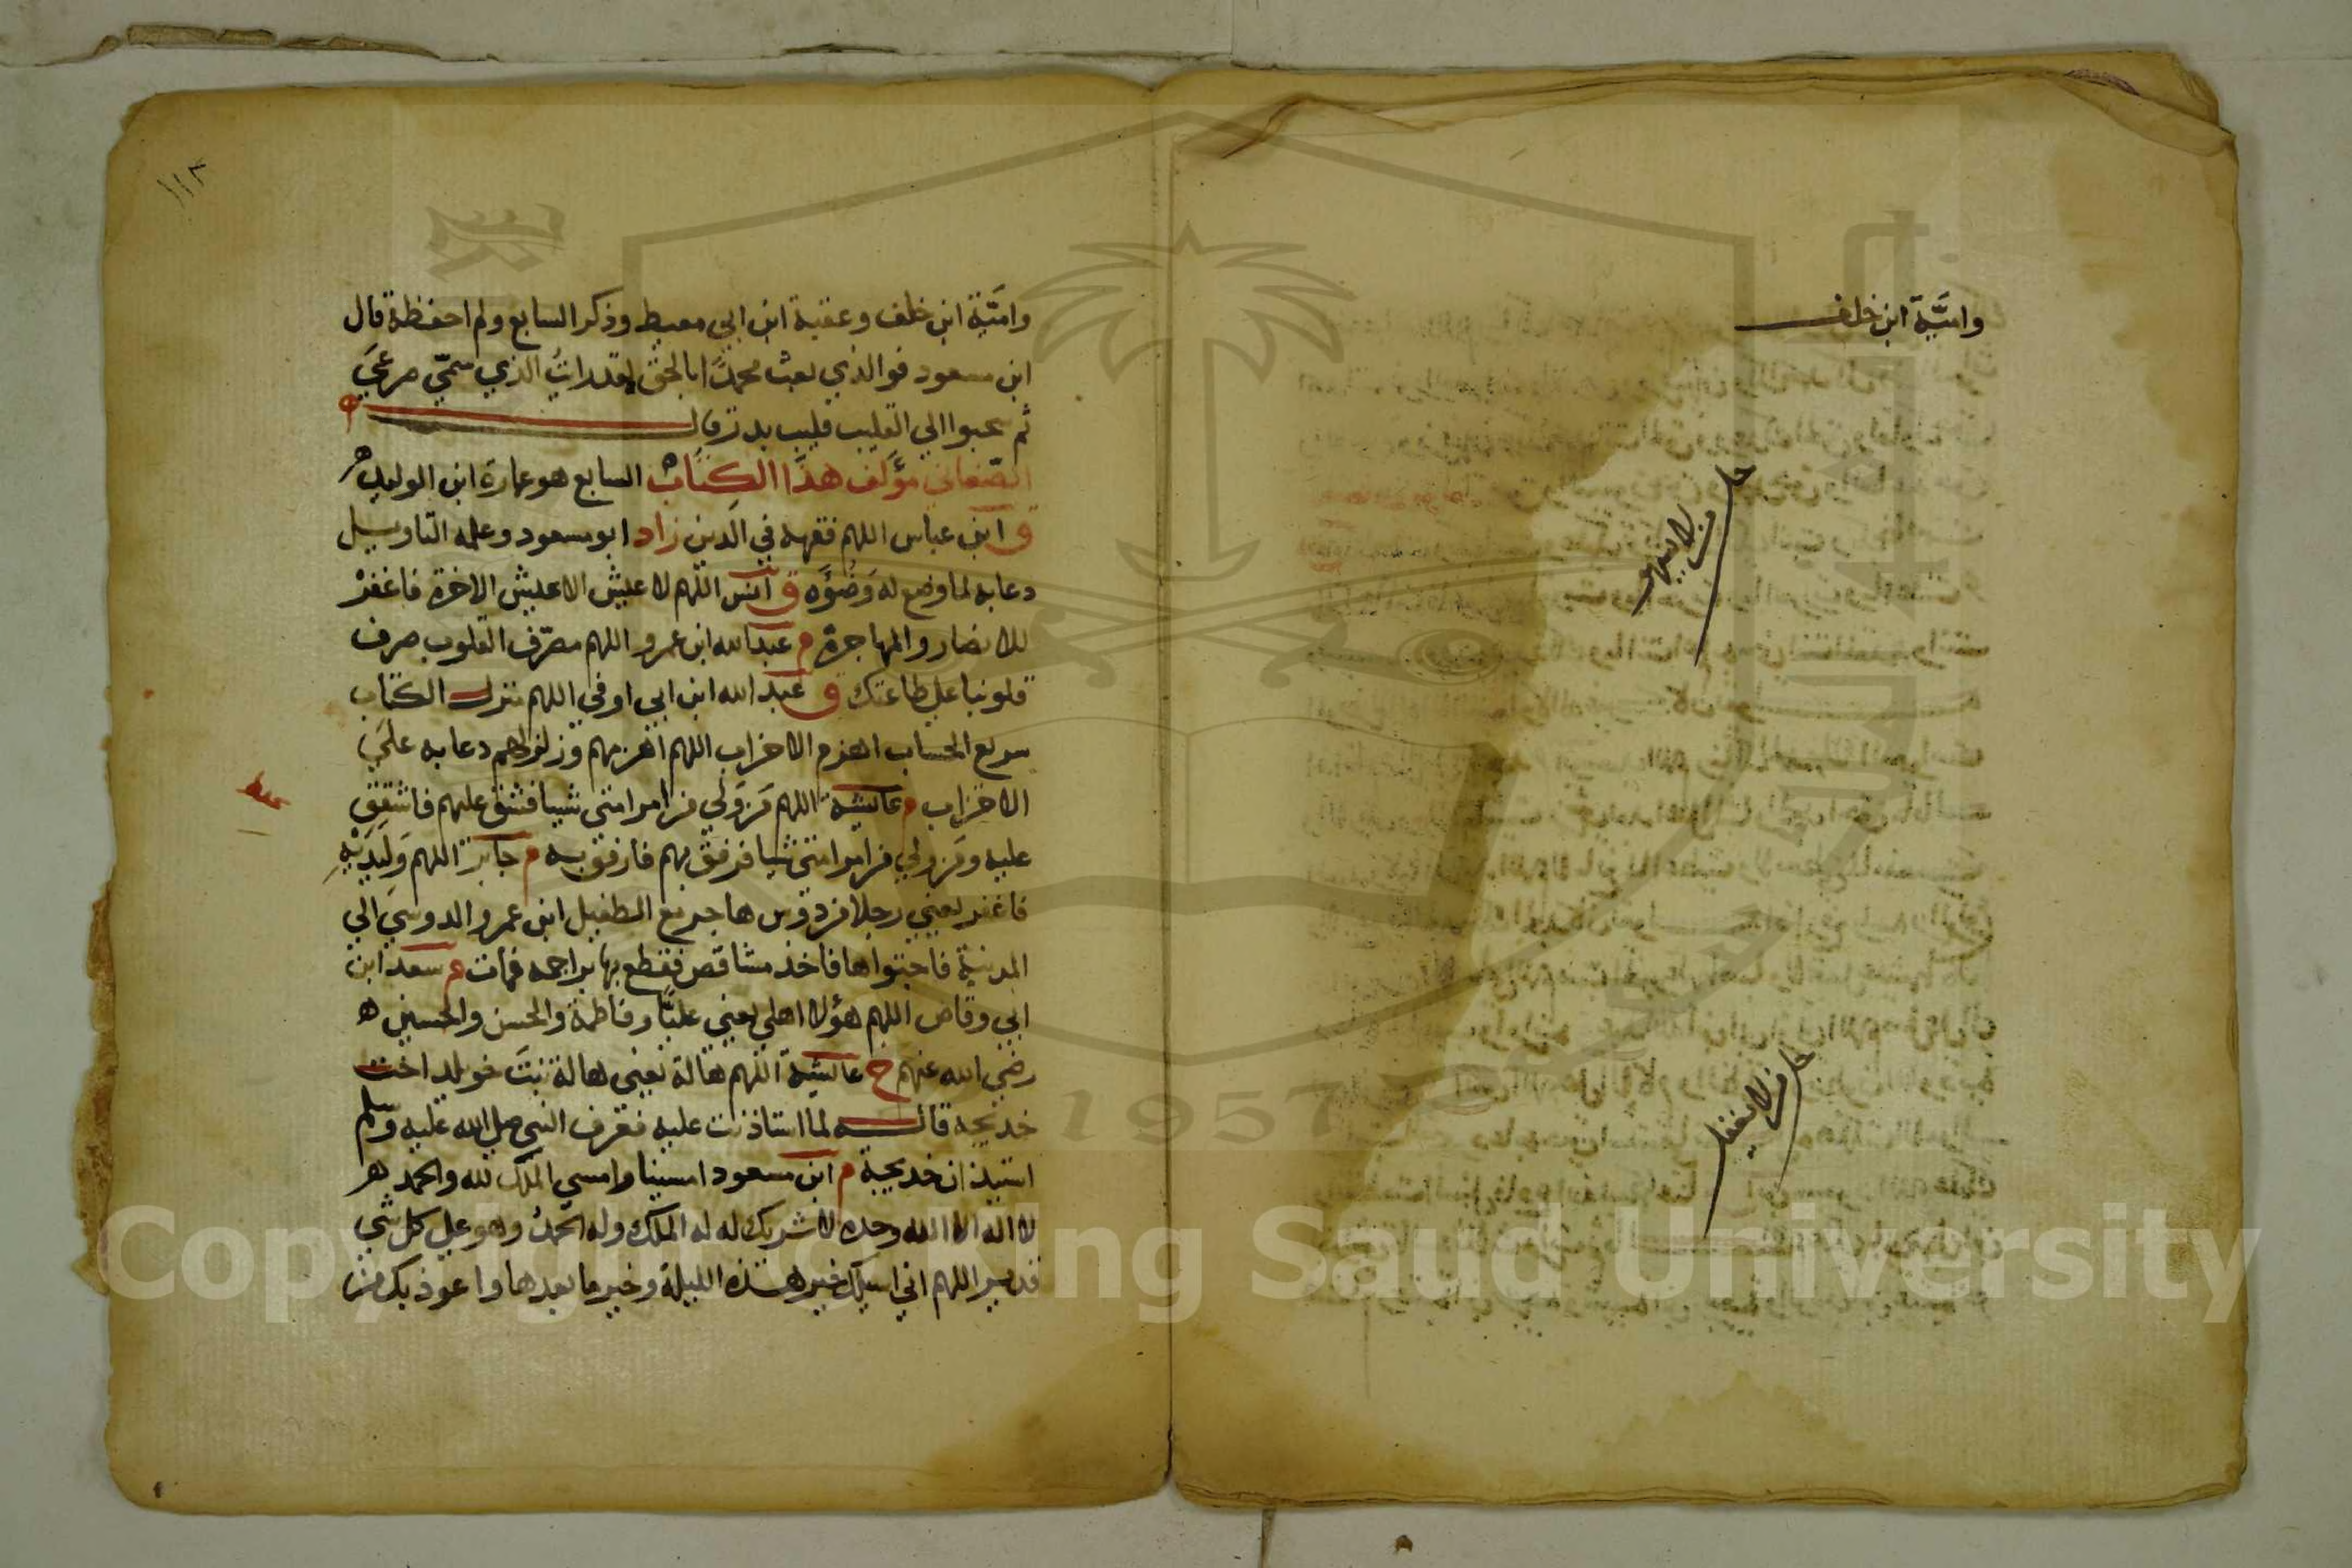 وامَيَّة ابن خلف
جل من لا يسهو
جل من لا يغفل
١١٢
وامَيَّة ابن خلف وعقبة ابن ابي معيط وذكر السابع ولم احفظه قال
ابن مسعود فوالذي بعث محمدًا بالحق لقد رايتُ الذي سمّي صرعَي
ثم سحبوا الي القليب قليب بدر قال
الصّغاني مؤلف هذا الكتاب السابع هو عمارة ابن الوليد ه
ق ابن عباس اللهم فقهه في الدين زاد ابو مسعود وعلمه التاويل
دعا به لما وضع له وَضُوَّه ق انس اللهم لا عيش الا عيش الاخرة فاغفرْ
للانصار والمهاجرة م عبد الله ابن عمرو اللهم مصرّف القلوب صرف
قلوبنا علي طاعتك ق عبد الله ابن ابي اوفي اللهم منزل الكتاب
سريع الحساب اهزم الاحزاب اللهم اهزمهم وزلزلهم دعا به علَي
الاحزاب م عايشة اللهم مَن وَلي من امر امتي شيا فشق عليهم فاشقق
عليه ومَن ولي من امر امتي شيا فرفق بهم فارفق به م جابر اللهم وَلِيَدَيْهِ
فاغفر يعني رجلا من دوس هاجر مع الطفيل ابن عمرو الدوسي الي
المدينة فاجتواها فاخذ مشاقص فقطع بها براجمه فمات م سعد ابن
ابي وقاص اللهم هؤلا اهلي يعني عليًّا وفاطمة والحسن والحسين ه
رضي الله عنهم خ عايشة اللهم هالة يعني هالة بنتَ خويلد اخت
خديجه قاله لما استاذنت عليه فعرف النبي صلي الله عليه وسلم
استيذان خديجة م ابن مسعود امسينا وامسي الملك لله والحمد لله
لا اله الا الله وحده لا شريك له له الملك وله الحمدُ وهو علي كل شي
قدير اللهم اني اسيلك خير هذه الليلة وخير ما بعدها واعوذ بك من
Copyright © King Saud University
1957